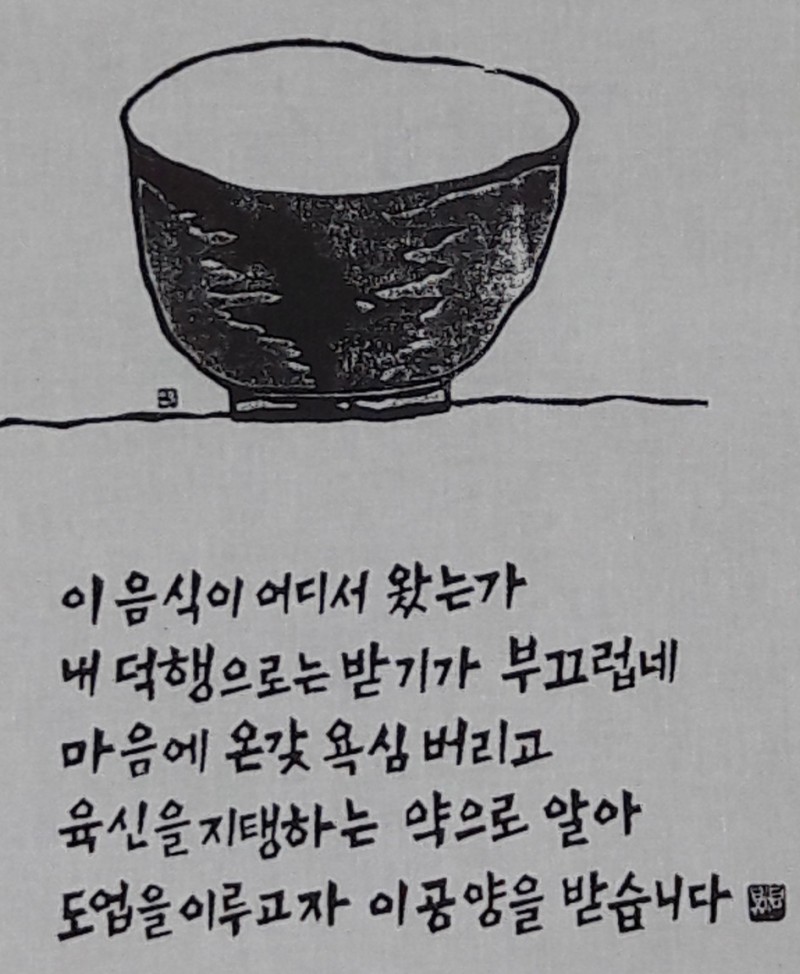 이 음식이 어디서 왔는가
내 덕행으로는 받기가 부끄럽네
마음에 온갖 욕심 버리고
육신을 지탱하는 약으로 알아
도업을 이루고자 이 공양을 받습니다